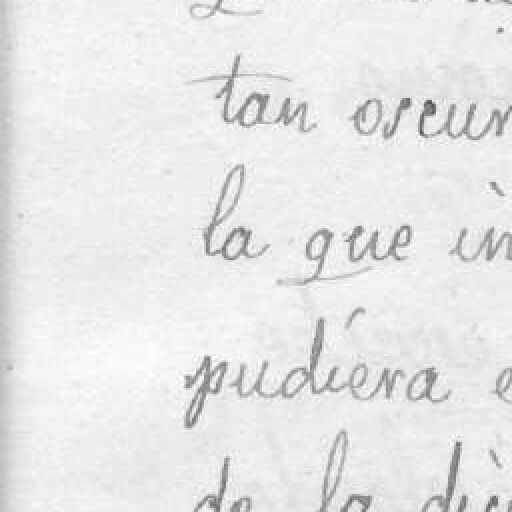 tan oscur
la que in
pudiera e
de la